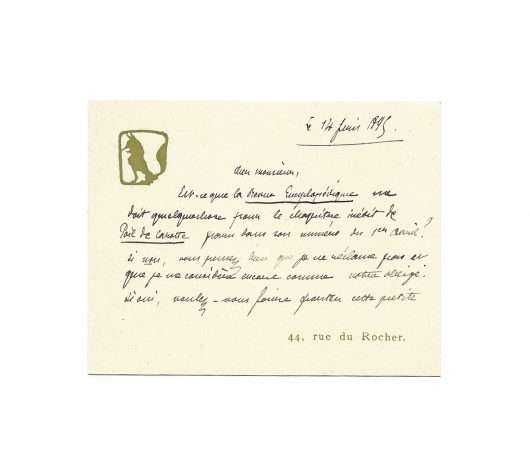 Le 14 juin 1895.
Cher monsieur,
Est-ce que la Revue Encyclopédique me
doit quelque chose pour le chapitre inédit de
Poil de Carotte paru dans son numéro du 1er avril?
Si non, vous pensez bien que je ne réclame pas et
que je me considère encore comme votre obligé.
Si oui, voulez-vous faire ajouter cette petite
44, rue du Rocher.